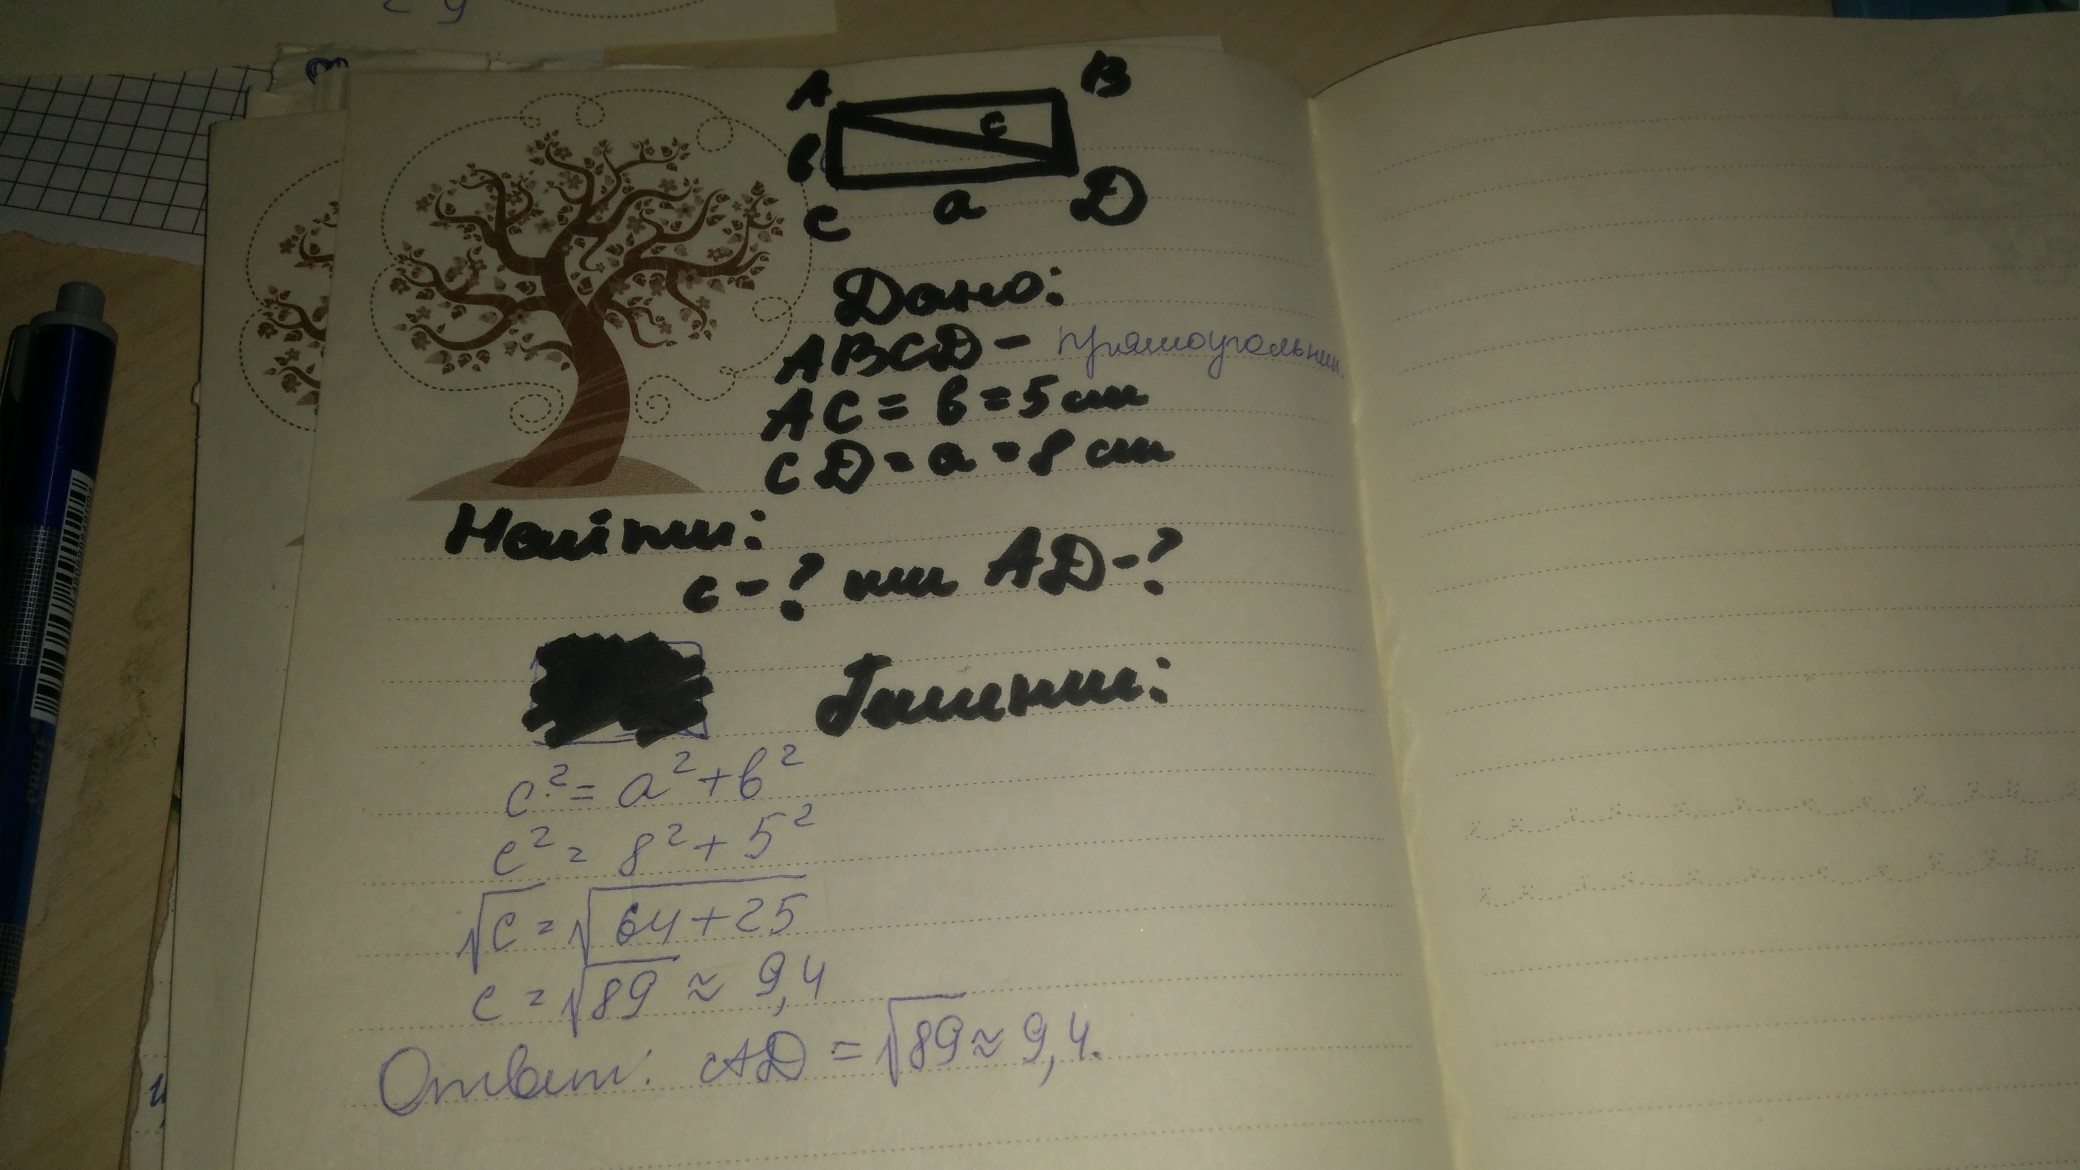 A B
c
в
C a D
Дано:
ABCD - прямоугольник.
AC = в = 5 см
CD = a = 8 см
Найти:
c - ? или AD - ?
Решение:
c² = a² + в²
c² = 8² + 5²
√c = √64 + 25
c = √89 ≈ 9,4
Ответ: AD = √89 ≈ 9,4.